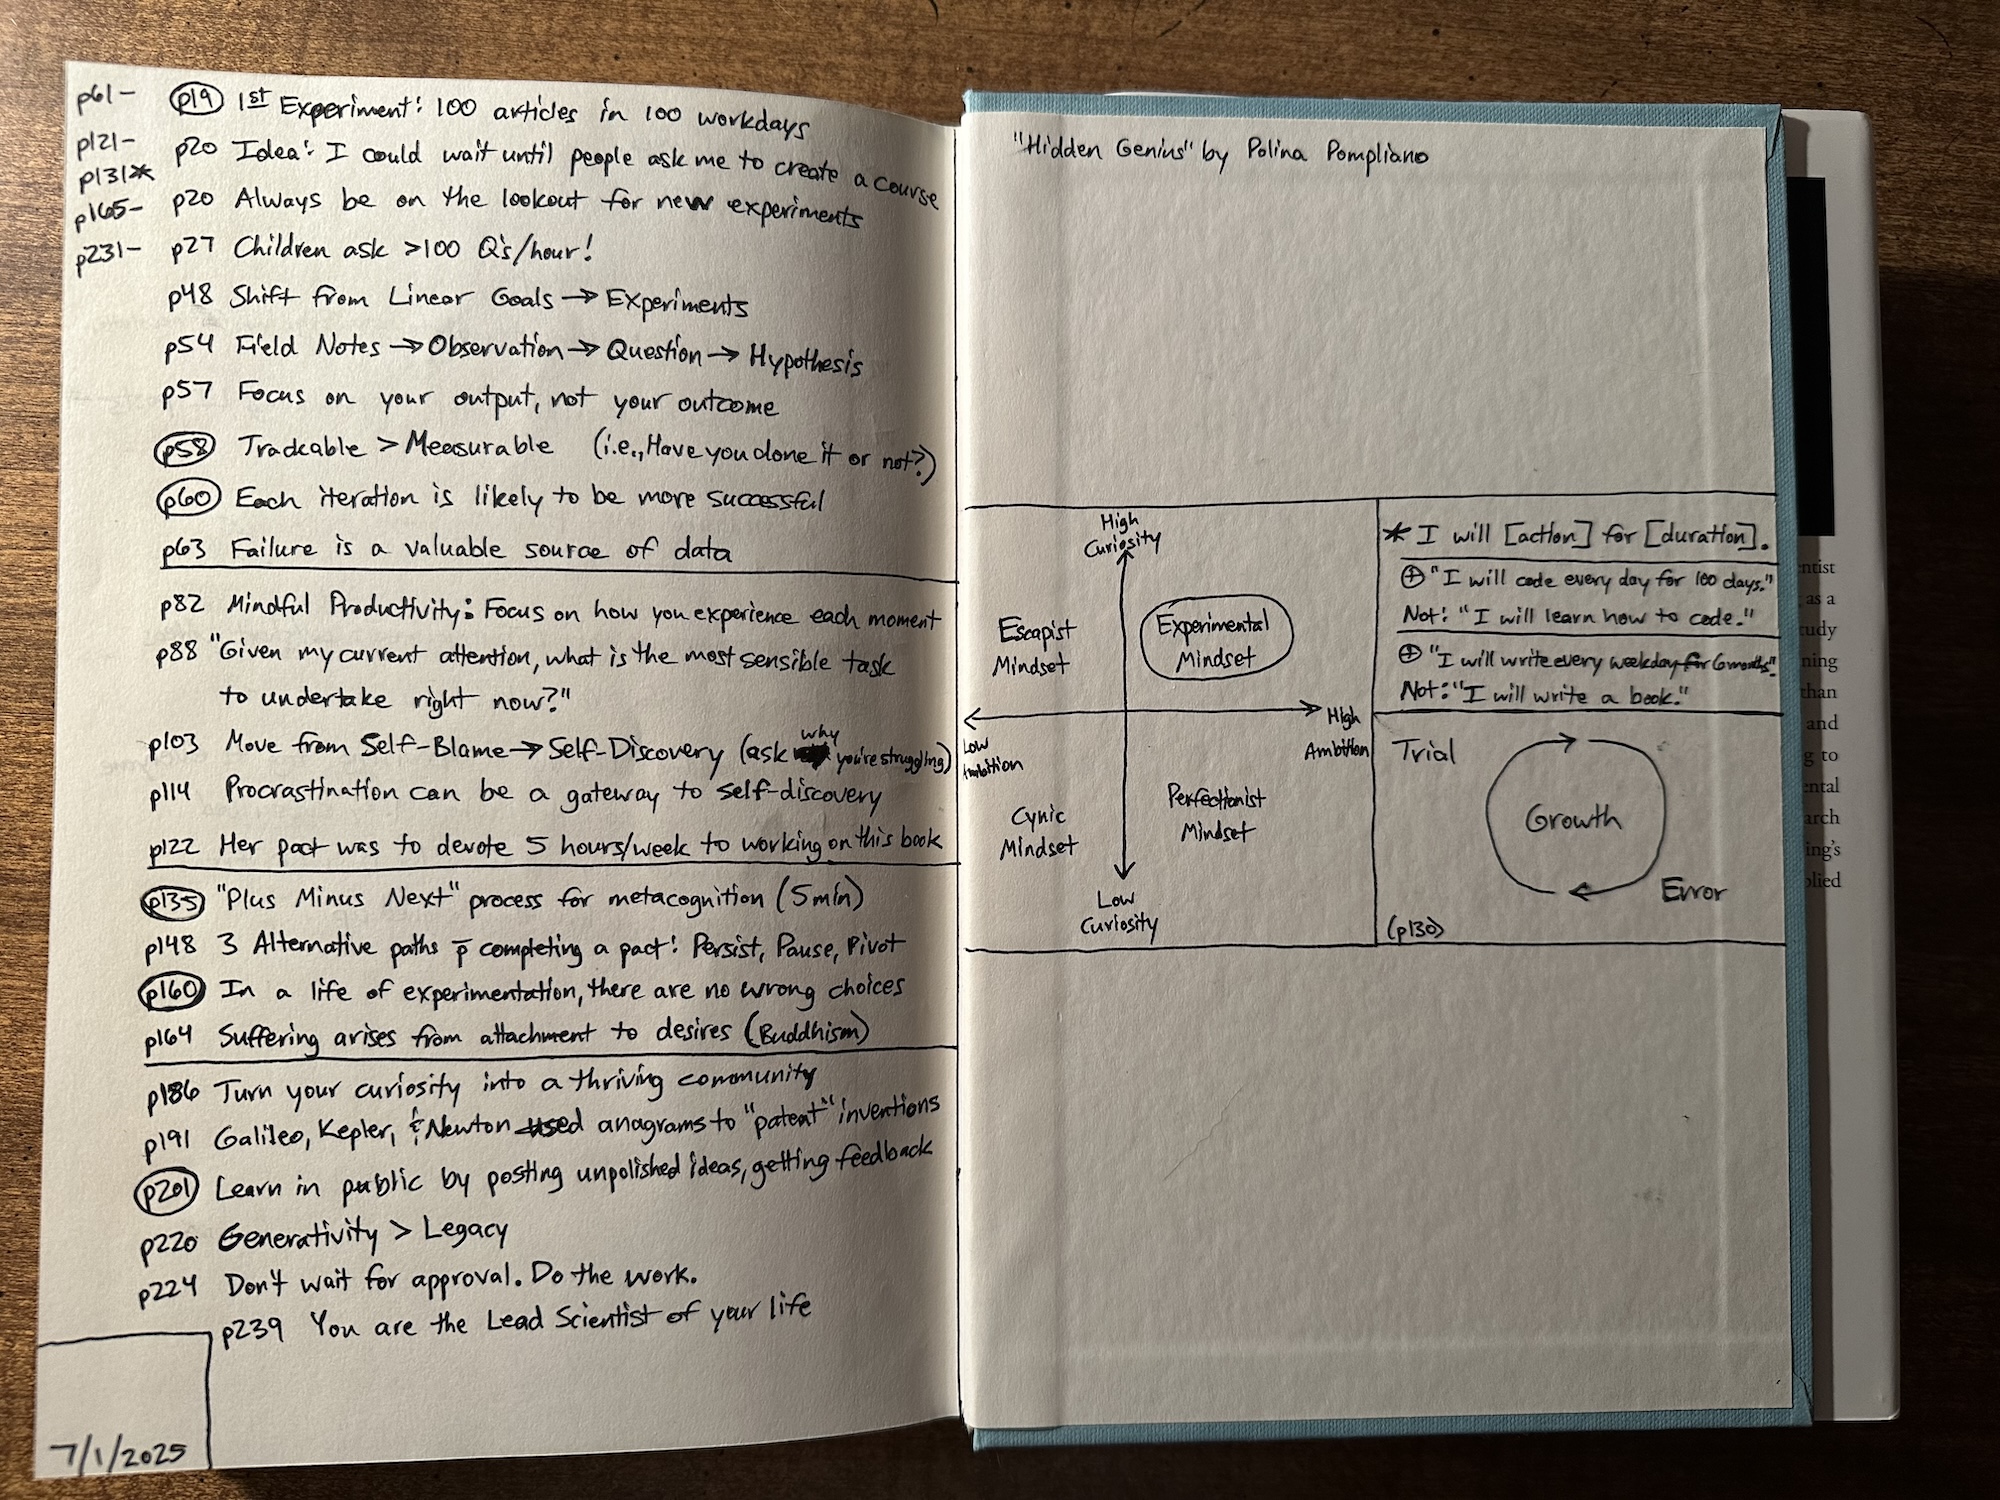 p61-
p121-
p131*
p165-
p231-
p19 1st Experiment: 100 articles in 100 workdays
p20 Idea: I could wait until people ask me to create a course
p20 Always be on the lookout for new experiments
p27 Children ask >100 Q's/hour!
p48 Shift from Linear Goals → Experiments
p54 Field Notes → Observation → Question → Hypothesis
p57 Focus on your output, not your outcome
p58 Trackable > Measurable (i.e., Have you done it or not?)
p60 Each iteration is likely to be more successful
p63 Failure is a valuable source of data
p82 Mindful Productivity: Focus on how you experience each moment
p88 "Given my current attention, what is the most sensible task
to undertake right now?"
p103 Move from Self-Blame → Self-Discovery (ask why you're struggling)
p114 Procrastination can be a gateway to self-discovery
p122 Her pact was to devote 5 hours/week to working on this book
p135 "Plus Minus Next" process for metacognition (5 min)
p148 3 Alternative paths p̄ completing a pact: Persist, Pause, Pivot
p160 In a life of experimentation, there are no wrong choices
p164 Suffering arises from attachment to desires (Buddhism)
p186 Turn your curiosity into a thriving community
p191 Galileo, Kepler, & Newton used anagrams to "patent" inventions
p201 Learn in public by posting unpolished ideas, getting feedback
p220 Generativity > Legacy
p224 Don't wait for approval. Do the work.
p239 You are the Lead Scientist of your life
7/1/2025
"Hidden Genius" by Polina Pompliano
High
Curiosity
Escapist
Mindset
Experimental
Mindset
Low
Ambition
High
Ambition
Cynic
Mindset
Perfectionist
Mindset
Low
Curiosity
* I will [action] for [duration].
⊕ "I will code every day for 100 days."
Not: "I will learn how to code."
⊕ "I will write every weekday for 6 months."
Not: "I will write a book."
Trial
Growth
Error
(p130)
as a
and
to